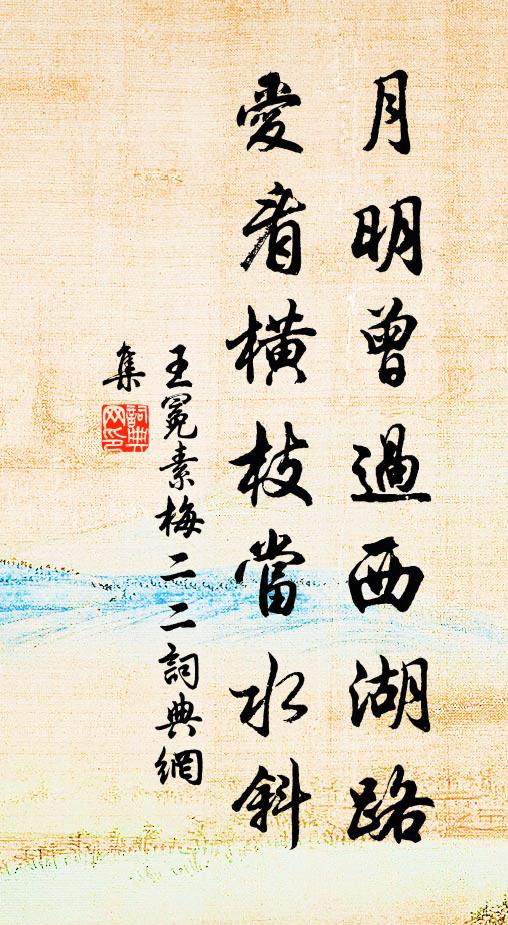 月明曾過西湖路
愛看橫枝當水斜
王冕素梅二二詞典網
集
詞典
网印